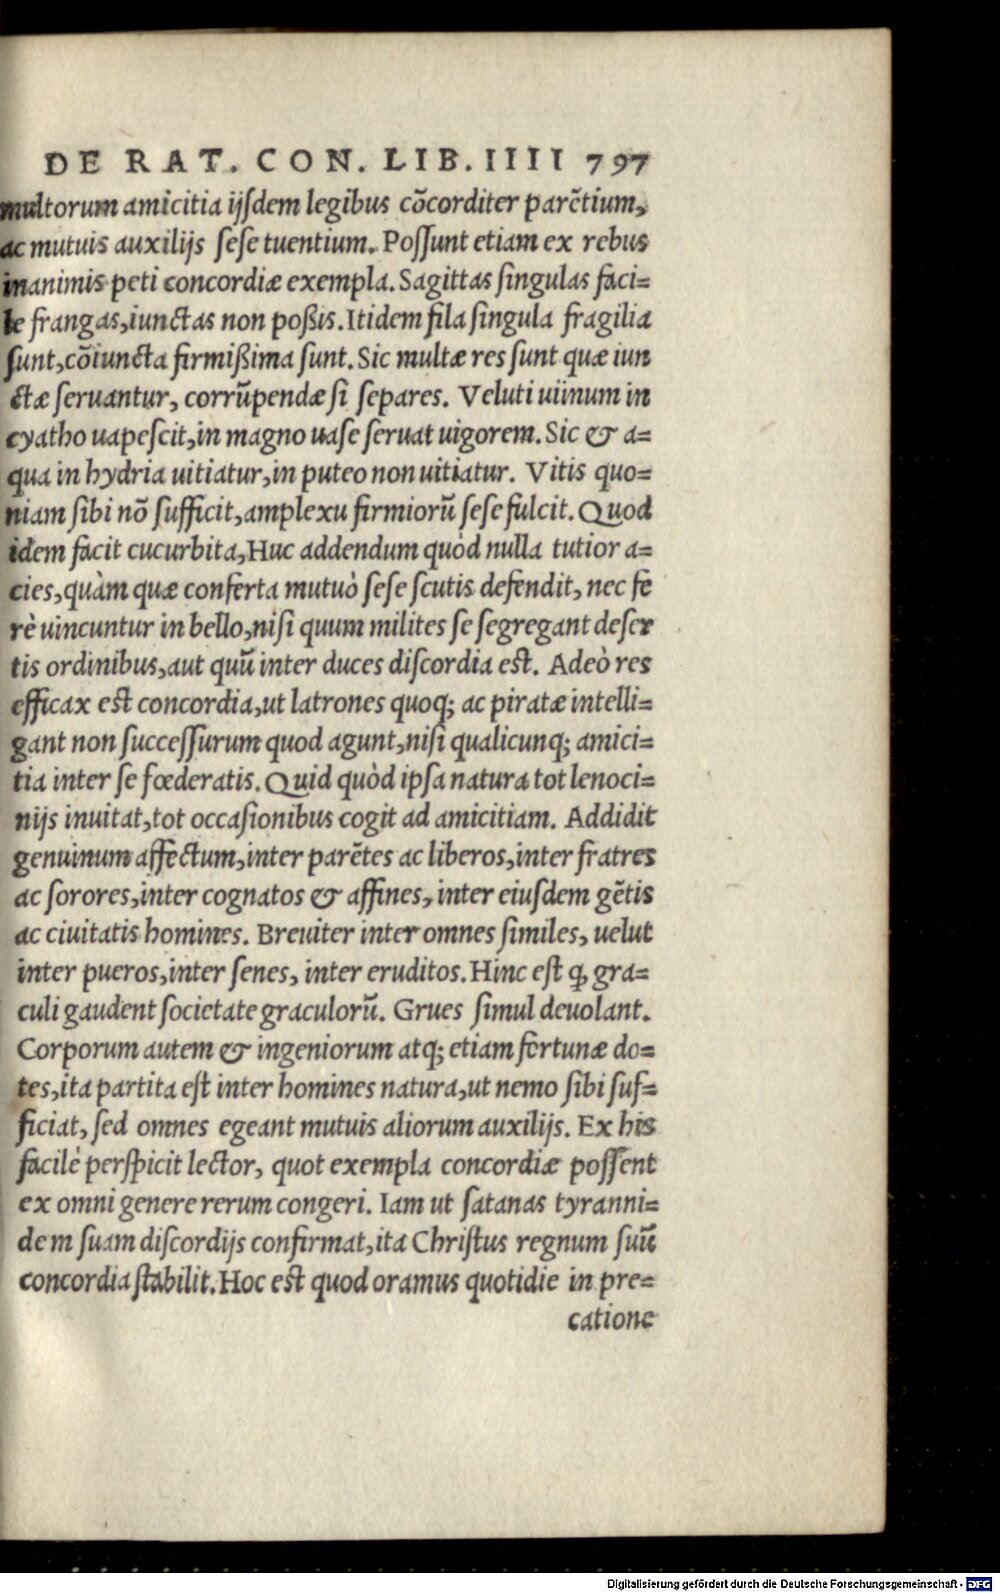 DE RAT. CON. LIB. IIII 797
multorum amicitia ijſdem legibus cõcorditer parẽtium,
ac mutuis auxilijs ſeſe tuentium. Poſſunt etiam ex rebus
inanimis peti concordiæ exempla. Sagittas ſingulas faci=
le frangas, iunctas non poßis. Itidem fila ſingula fragilia
ſunt, cõiuncta firmißima ſunt. Sic multæ res ſunt quæ iun
ctæ ſeruantur, corrũpendæ ſi ſepares. Veluti uiinum in
cyatho uapeſcit, in magno uaſe ſeruat uigorem. Sic & a=
qua in hydria uitiatur, in puteo non uitiatur. Vitis quo=
niam ſibi nõ ſufficit, amplexu firmiorũ ſeſe fulcit. Quod
idem facit cucurbita, Huc addendum quòd nulla tutior a=
cies, quàm quæ conferta mutuò ſeſe ſcutis defendit, nec fe
rè uincuntur in bello, niſi quum milites ſe ſegregant deſer
tis ordinibus, aut quũ inter duces diſcordia eſt. Adeò res
efficax eſt concordia, ut latrones quoq; ac piratæ intelli=
gant non ſucceſſurum quod agunt, niſi qualicunq; amici=
tia inter ſe fœderatis. Quid quòd ipſa natura tot lenoci=
nijs inuitat, tot occaſionibus cogit ad amicitiam. Addidit
genuinum affectum, inter parẽtes ac liberos, inter fratres
ac ſorores, inter cognatos & affines, inter eiuſdem gẽtis
ac ciuitatis homines. Breuiter inter omnes ſimiles, uelut
inter pueros, inter ſenes, inter eruditos. Hinc eſt ꝙ gra=
culi gaudent ſocietate graculorũ. Grues ſimul deuolant.
Corporum autem & ingeniorum atq; etiam fortunæ do=
tes, ita partita eſt inter homines natura, ut nemo ſibi ſuf=
ficiat, ſed omnes egeant mutuis aliorum auxilijs. Ex his
facilè perſpicit lector, quot exempla concordiæ poſſent
ex omni genere rerum congeri. Iam ut ſatanas tyranni=
dem ſuam diſcordijs confirmat, ita Chriſtus regnum ſuũ
concordia ſtabilit. Hoc eſt quod oramus quotidie in pre=
catione
Digitalisierung gefördert durch die Deutsche Forschungsgemeinschaft - DFG